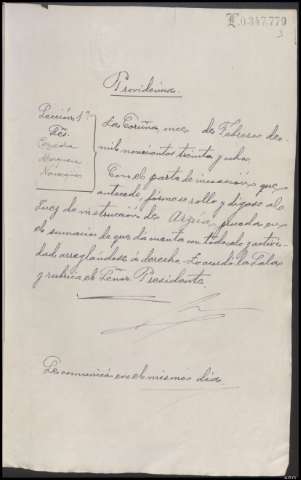 L 0.347.779
3
Providencia.
Sección 1ª
Sres.
La Coruña, once de Febrero de
mil novecientos treinta y ocho.
Con el parte de incoación que
antecede fórmese rollo y dígase al
Juez de instrucción de Arzúa, proceda en
el sumario de que da cuenta con todo celo y activi-
dad arreglándose á derecho. Lo acordó la Sala
y rubrica el Señor Presidente
Se comunicó en el mismo día